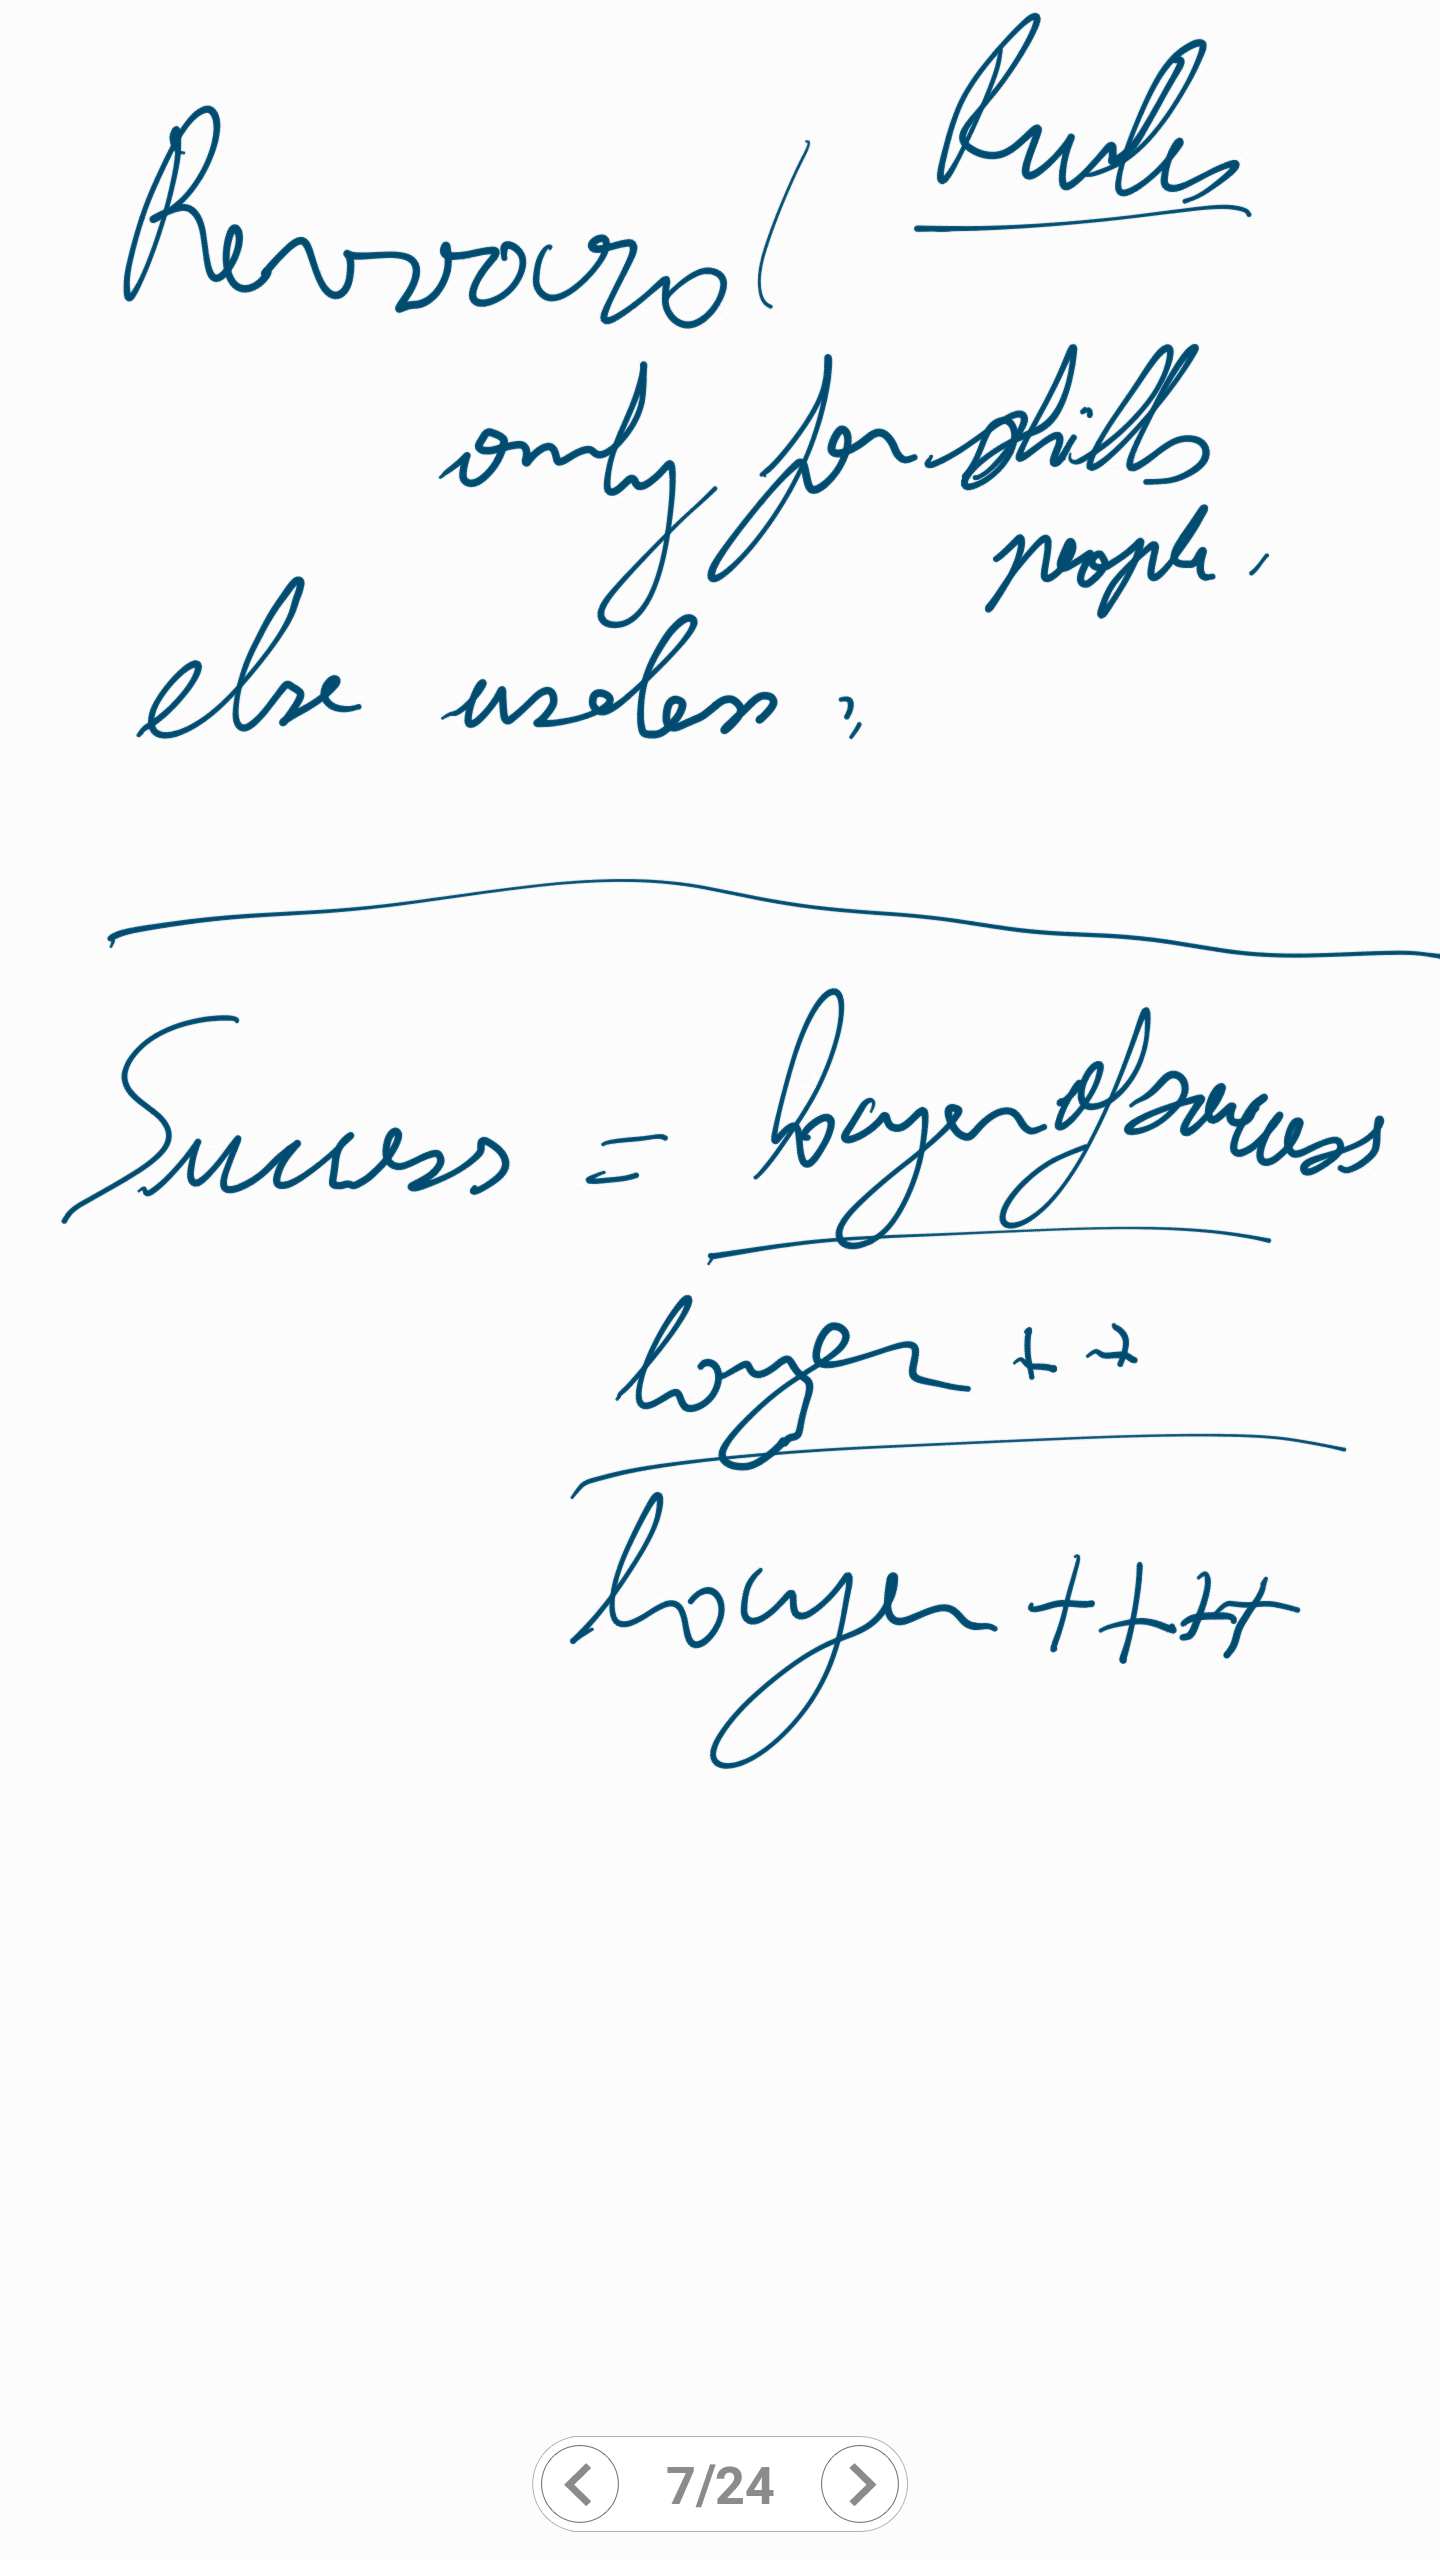 Rules
only for skills
people.
else useless.
Success = layer of success
layer ++
layer ++++
7/24